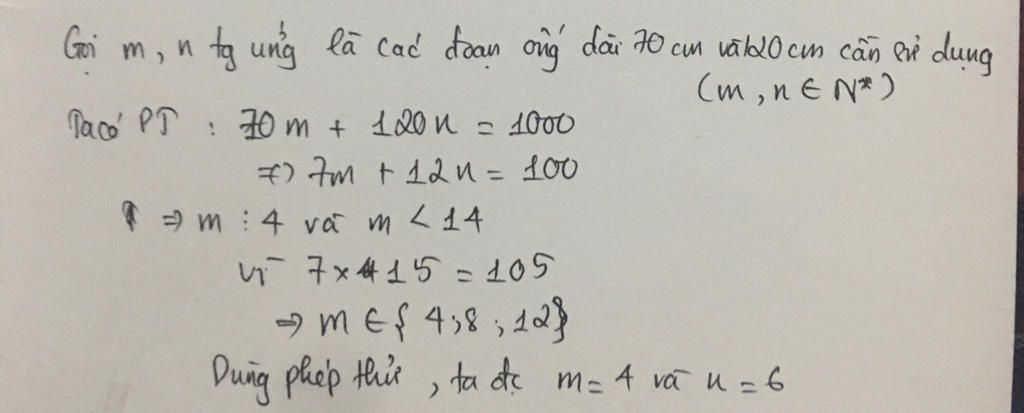 Gọi m, n tg ứng là các đoạn ống dài 70 cm và 120 cm cần sử dụng
(m, n ∈ N*)
Ta có PT : 70m + 120n = 1000
⇔ 7m + 12n = 100
⇒ m ⋮ 4 và m < 14
Vì 7 x 15 = 105
⇒ m ∈ { 4; 8 ; 12}
Dùng phép thử, ta đc m = 4 và n = 6